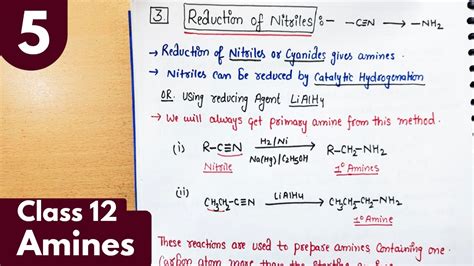 5
Class 12
Amines
3. Reduction of Nitriles :- —C≡N ⟶ —NH2
→ Reduction of Nitriles or Cyanides gives amines.
→ Nitriles can be reduced by Catalytic Hydrogenation
OR using reducing Agent LiAlH4
→ We will always get primary amine from this method.
(i) R-C≡N H2/Ni Na(Hg)/C2H5OH ⟶ R-CH2-NH2
Nitrile 1° Amines
(ii) CH3CH2-C≡N LiAlH4 ⟶ CH3CH2-CH2-NH2
1° Amine
These reactions are used to prepare amines containing one
carbon atom more than the starting